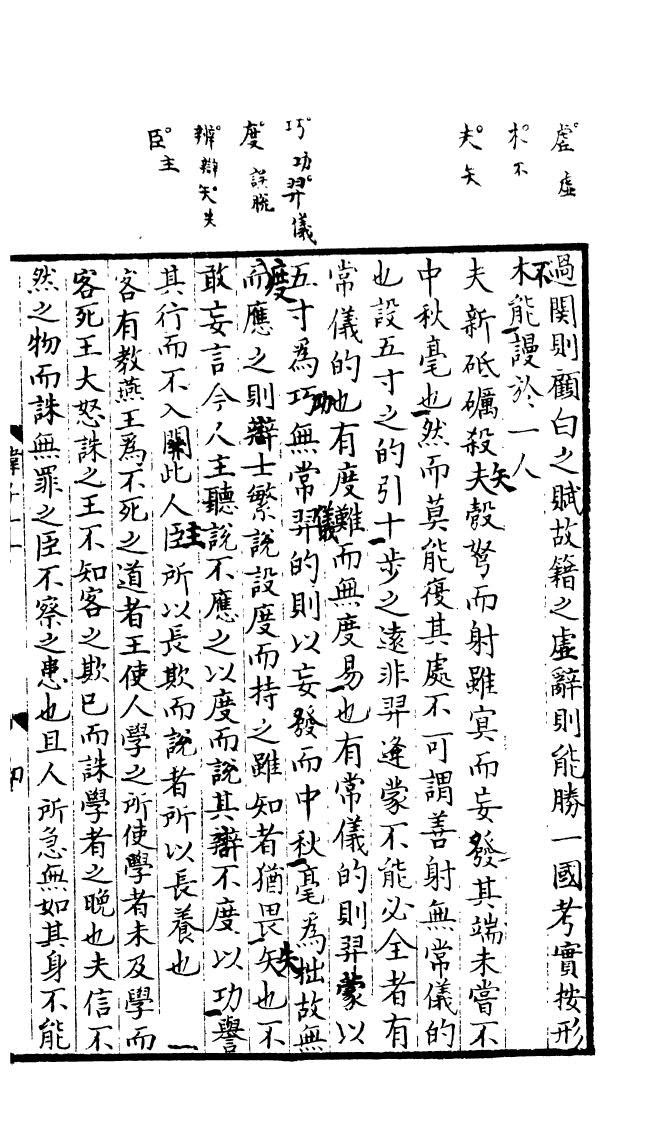 虛 虚
木 不
夫 矢
巧 功 羿 儀
度 誤脫
辨 辯 矢 失
臣 主
過関則顧白之賦故籍之虚辭則能勝一國考實按形
不能謾於一人
夫新砥礪殺矢彀弩而射雖冥而妄發其端未嘗不
中秋毫也然而莫能復其處不可謂善射無常儀的
也設五寸之的引十步之遠非羿逄蒙不能必全者有
常儀的也有度難而無度易也有常儀的則羿蒙以
五寸為功無常儀的則以妄發而中秋毫為拙故無
度而應之則辯士繁說設度而持之雖知者猶畏失也不
敢妄言今人主聽說不應之以度而說其辯不度以功譽
其行而不入關此人主所以長欺而說者所以長養也
客有教燕王為不死之道者王使人學之所使學者未及學而
客死王大怒誅之王不知客之欺已而誅學者之晚也夫信不
然之物而誅無罪之臣不察之患也且人所急無如其身不能